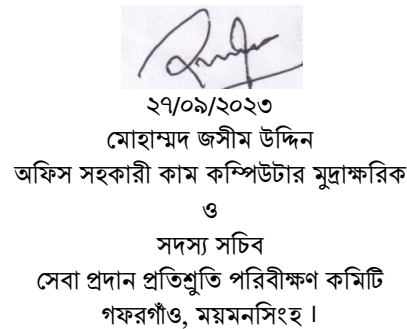 ২৭/০৯/২০২৩
মোহাম্মদ জসীম উদ্দিন
অফিস সহকারী কাম কম্পিউটার মুদ্রাক্ষরিক
ও
সদস্য সচিব
সেবা প্রদান প্রতিশ্রুতি পরিবীক্ষণ কমিটি
গফরগাঁও, ময়মনসিংহ ।